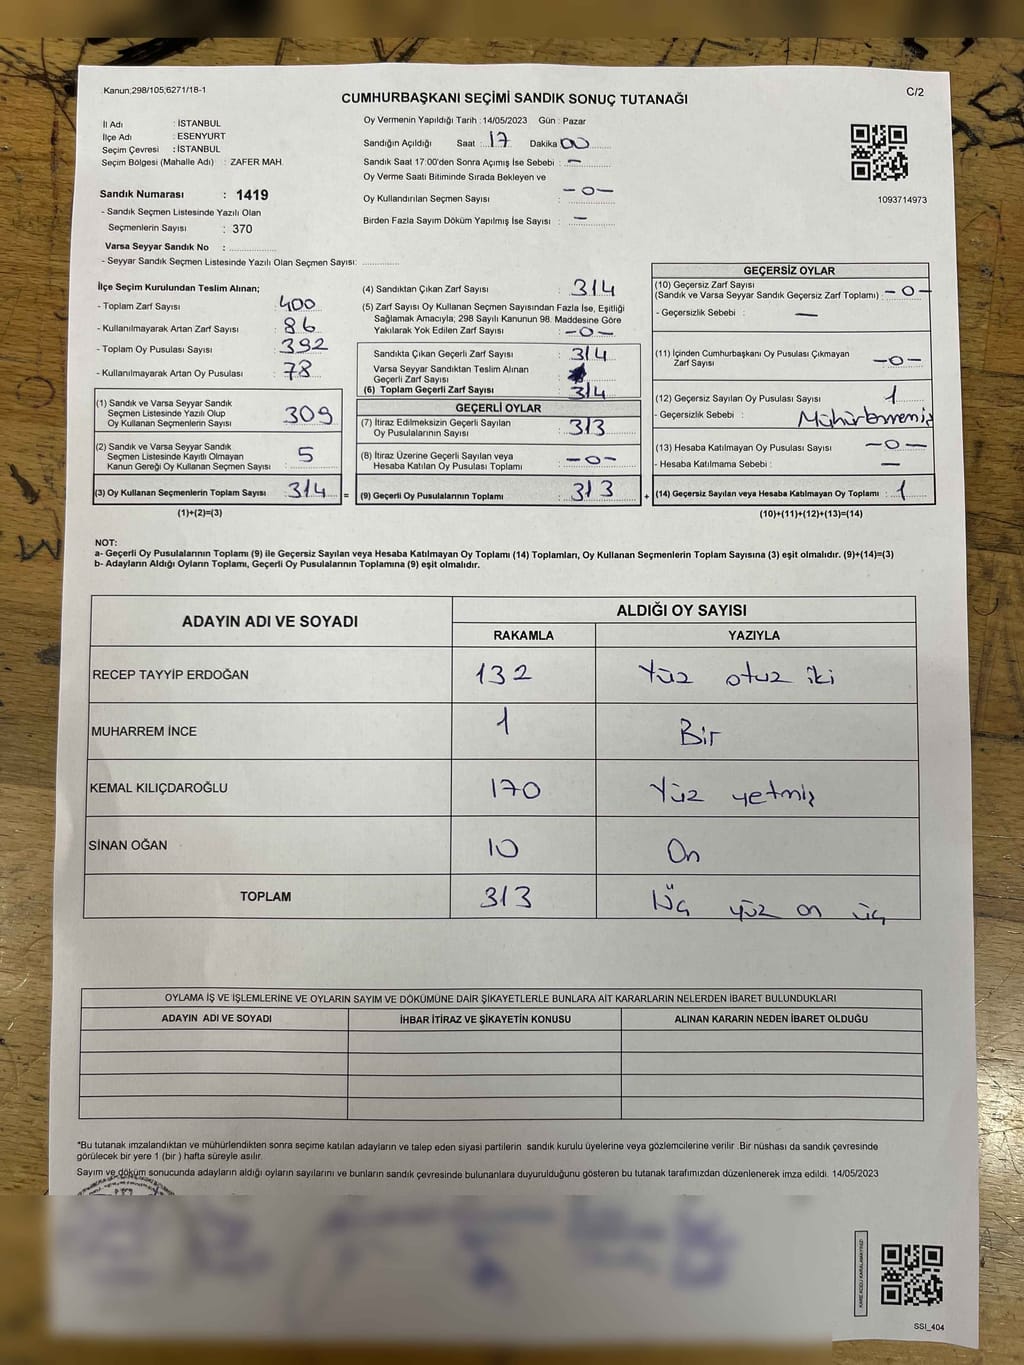 Kanun;298/105;6271/18-1
C/2
CUMHURBAŞKANI SEÇİMİ SANDIK SONUÇ TUTANAĞI
İl Adı : İSTANBUL
İlçe Adı : ESENYURT
Seçim Çevresi : İSTANBUL
Seçim Bölgesi (Mahalle Adı) : ZAFER MAH.
Sandık Numarası : 1419
- Sandık Seçmen Listesinde Yazılı Olan
Seçmenlerin Sayısı : 370
Varsa Seyyar Sandık No :
- Seyyar Sandık Seçmen Listesinde Yazılı Olan Seçmen Sayısı:
Oy Vermenin Yapıldığı Tarih :14/05/2023 Gün : Pazar
Sandığın Açıldığı Saat : 17 Dakika 00
Sandık Saat 17:00'den Sonra Açımış İse Sebebi : —
Oy Verme Saati Bitiminde Sırada Bekleyen ve
Oy Kullandırılan Seçmen Sayısı : —0—
Birden Fazla Sayım Döküm Yapılmış İse Sayısı : —
1093714973
İlçe Seçim Kurulundan Teslim Alınan;
- Toplam Zarf Sayısı : 400
- Kullanılmayarak Artan Zarf Sayısı : 86
- Toplam Oy Pusulası Sayısı : 392
- Kullanılmayarak Artan Oy Pusulası : 78
(1) Sandık ve Varsa Seyyar Sandık
Seçmen Listesinde Yazılı Olup
Oy Kullanan Seçmenlerin Sayısı : 309
(2) Sandık ve Varsa Seyyar Sandık
Seçmen Listesinde Kayıtlı Olmayan
Kanun Gereği Oy Kullanan Seçmen Sayısı : 5
(3) Oy Kullanan Seçmenlerin Toplam Sayısı : 314 =
(1)+(2)=(3)
(4) Sandıktan Çıkan Zarf Sayısı : 314
(5) Zarf Sayısı Oy Kullanan Seçmen Sayısından Fazla İse, Eşitliği
Sağlamak Amacıyla; 298 Sayılı Kanunun 98. Maddesine Göre
Yakılarak Yok Edilen Zarf Sayısı : —0—
Sandıkta Çıkan Geçerli Zarf Sayısı : 314
Varsa Seyyar Sandıktan Teslim Alınan
Geçerli Zarf Sayısı :
(6) Toplam Geçerli Zarf Sayısı : 314
GEÇERLİ OYLAR
(7) İtiraz Edilmeksizin Geçerli Sayılan
Oy Pusulalarının Sayısı : 313
(8) İtiraz Üzerine Geçerli Sayılan veya
Hesaba Katılan Oy Pusulası Toplamı : —0—
(9) Geçerli Oy Pusulalarının Toplamı : 313 +
GEÇERSİZ OYLAR
(10) Geçersiz Zarf Sayısı
(Sandık ve Varsa Seyyar Sandık Geçersiz Zarf Toplamı) : —0—
- Geçersizlik Sebebi : —
(11) İçinden Cumhurbaşkanı Oy Pusulası Çıkmayan
Zarf Sayısı : —0—
(12) Geçersiz Sayılan Oy Pusulası Sayısı : 1
- Geçersizlik Sebebi : Mühürlenmemiş
(13) Hesaba Katılmayan Oy Pusulası Sayısı : —0—
- Hesaba Katılmama Sebebi : —
(14) Geçersiz Sayılan veya Hesaba Katılmayan Oy Toplamı : 1
(10)+(11)+(12)+(13)=(14)
NOT:
a- Geçerli Oy Pusulalarının Toplamı (9) ile Geçersiz Sayılan veya Hesaba Katılmayan Oy Toplamı (14) Toplamları, Oy Kullanan Seçmenlerin Toplam Sayısına (3) eşit olmalıdır. (9)+(14)=(3)
b- Adayların Aldığı Oyların Toplamı, Geçerli Oy Pusulalarının Toplamına (9) eşit olmalıdır.
ADAYIN ADI VE SOYADI
ALDIĞI OY SAYISI
RAKAMLA YAZIYLA
RECEP TAYYİP ERDOĞAN 132 Yüz otuz iki
MUHARREM İNCE 1 Bir
KEMAL KILIÇDAROĞLU 170 Yüz yetmiş
SİNAN OĞAN 10 On
TOPLAM 313 Üç yüz on üç
OYLAMA İŞ VE İŞLEMLERİNE VE OYLARIN SAYIM VE DÖKÜMÜNE DAİR ŞİKAYETLERLE BUNLARA AİT KARARLARIN NELERDEN İBARET BULUNDUKLARI
ADAYIN ADI VE SOYADI İHBAR İTİRAZ VE ŞİKAYETİN KONUSU ALINAN KARARIN NEDEN İBARET OLDUĞU
*Bu tutanak imzalandıktan ve mühürlendikten sonra seçime katılan adayların ve talep eden siyasi partilerin sandık kurulu üyelerine veya gözlemcilerine verilir .Bir nüshası da sandık çevresinde
görülecek bir yere 1 (bir ) hafta süreyle asılır.
Sayım ve döküm sonucunda adayların aldığı oyların sayılarını ve bunların sandık çevresinde bulunanlara duyurulduğunu gösteren bu tutanak tarafımızdan düzenlenerek imza edildi. 14/05/2023
KARE KODU KARALAMAYINIZ!
SSI_404